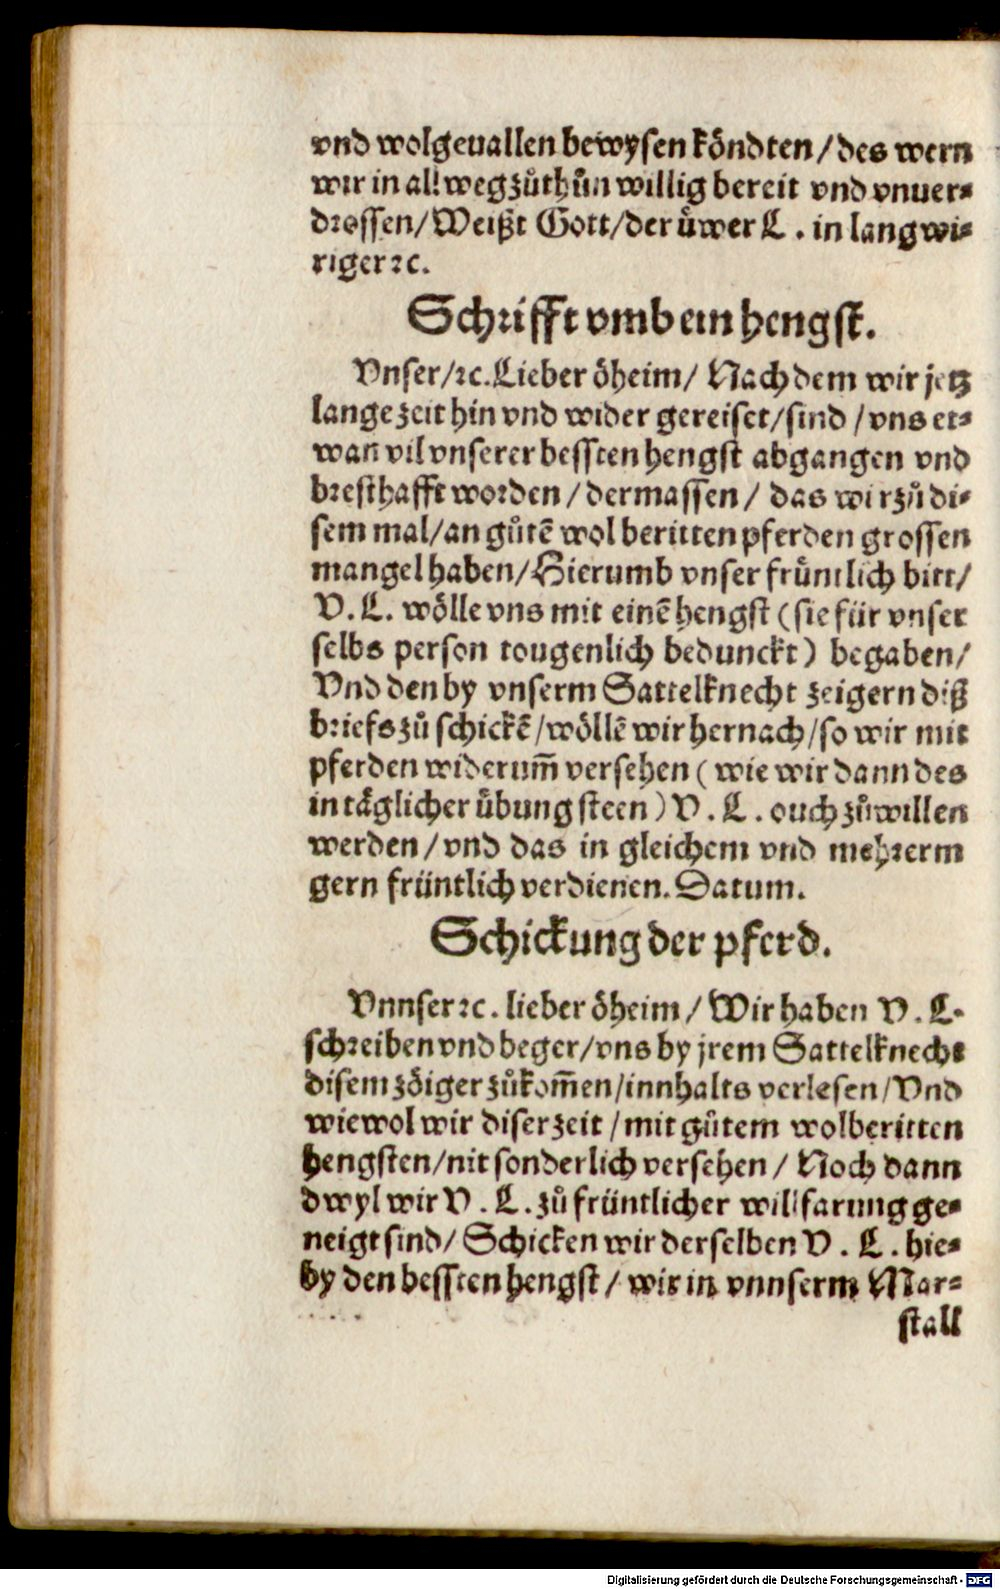 vnd wolgeuallen bewysen köndten / des wern
wir in allweg zůthůn willig bereit vnd vnuer⸗
drossen / Weißt Gott / der üwer L. in langwi⸗
riger ꝛc.
Schrifft vmb ein hengst.
Vnser / ꝛc. Lieber öheim / Nachdem wir jetz
lange zeit hin vnd wider gereiset / sind / vns et⸗
wan vil vnserer bessten hengst abgangen vnd
bresthafft worden / dermassen / das wir zů di⸗
sem mal / an gůtē wol beritten pferden grossen
mangel haben / Hierumb vnser früntlich bitt /
V. L. wölle vns mit einē hengst (sie für vnser
selbs person tougenlich bedunckt) begaben /
Vnd den by vnserm Sattelknecht zeigern diß
briefs zů schickē / wöllē wir hernach / so wir mit
pferden widerum̄ versehen (wie wir dann des
in täglicher übung steen) V. L. ouch zůwillen
werden / vnd das in gleichem vnd mehrerm
gern früntlich verdienen. Datum.
Schickung der pferd.
Vnnser ꝛc. lieber öheim / Wir haben V. L.
schreiben vnd beger / vns by jrem Sattelknecht
disem zöiger zůkom̄en / innhalts verlesen / Vnd
wiewol wir diser zeit / mit gůtem wolberitten
hengsten / nit sonderlich versehen / Noch dann
dwyl wir V. L. zů früntlicher willfarung ge⸗
neigt sind / Schicken wir derselben V. L. hie⸗
by den bessten hengst / wir in vnnserm Mar⸗
stall
Digitalisierung gefördert durch die Deutsche Forschungsgemeinschaft - DFG